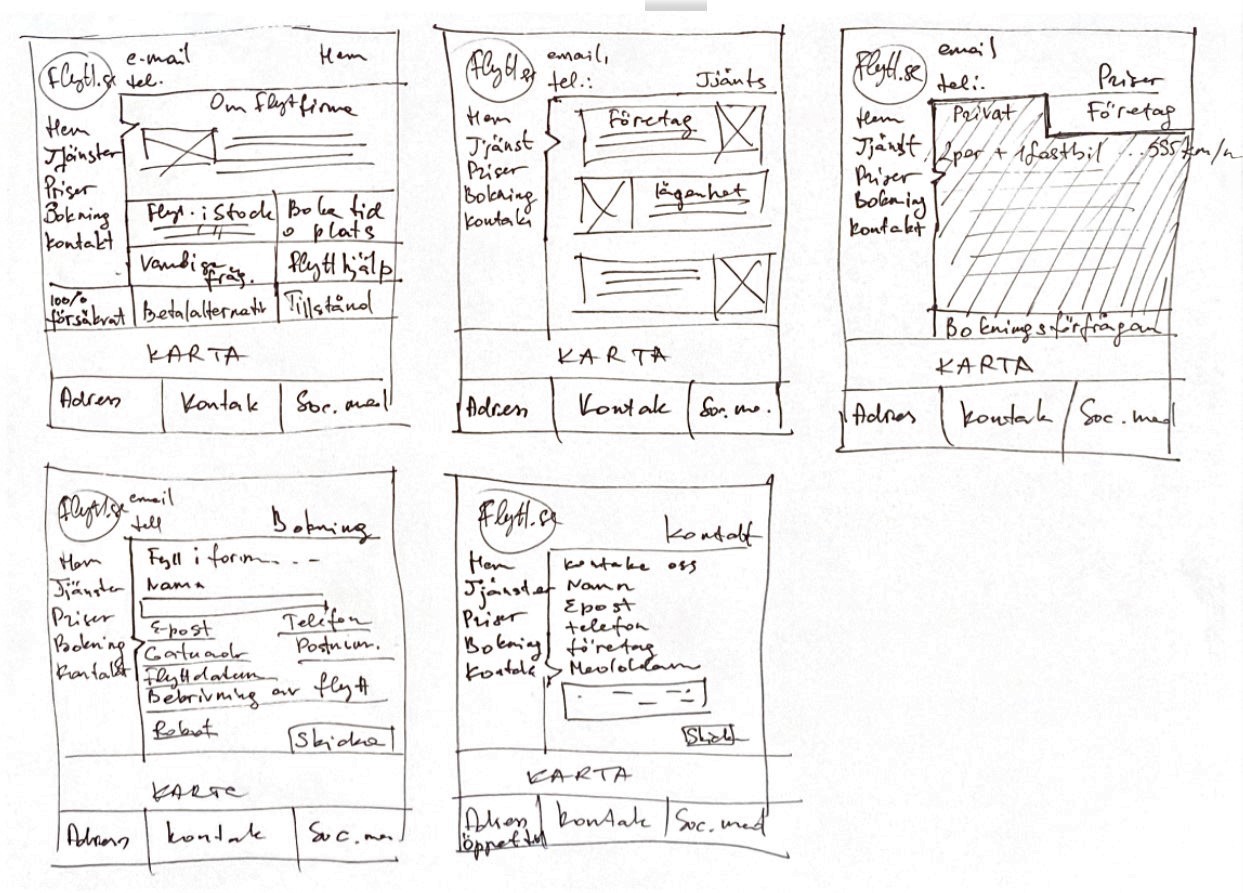 Flytt.se
e-mail
tel.
Hem
Om flytfirma
Hem
Tjänster
Priser
Bokning
Kontakt
Flyt. i Stock
Boka tid
o plats
Vandiga
fråg.
flytthjälp
100%
försäkrat
Betalalternativ
Tillstånd
KARTA
Adress
Kontak
Soc. med
Flytt.se
email,
tel.:
Tjänts
Hem
Tjänst
Priser
Bokning
Kontakt
Företag
lägenhet
KARTA
Adress
Kontak
Soc. me.
Flytt.se
email
tel.:
Priser
Hem
Tjänst
Priser
Bokning
Kontakt
Privat
Företag
2per + 1lastbil ... 555 km/h
Bokningsförfrågan
KARTA
Adress
Kontak
Soc. med
Flytt.se
email
tell
Bokning
Hem
Tjänster
Priser
Bokning
Kontakt
Fyll i form...
Namn
Epost
Telefon
Gatuadr
Postnum.
Flyttdatum
Bebrivning av flytt
Robot
Skicka
KARTA
Adress
Kontak
Soc. me
Flytt.se
Kontakt
Hem
Tjänster
Priser
Bokning
Kontakt
Kontakta oss
Namn
Epost
telefon
företag
Meddelan
Skick
KARTA
Adress
öppet
Kontak
Soc. med